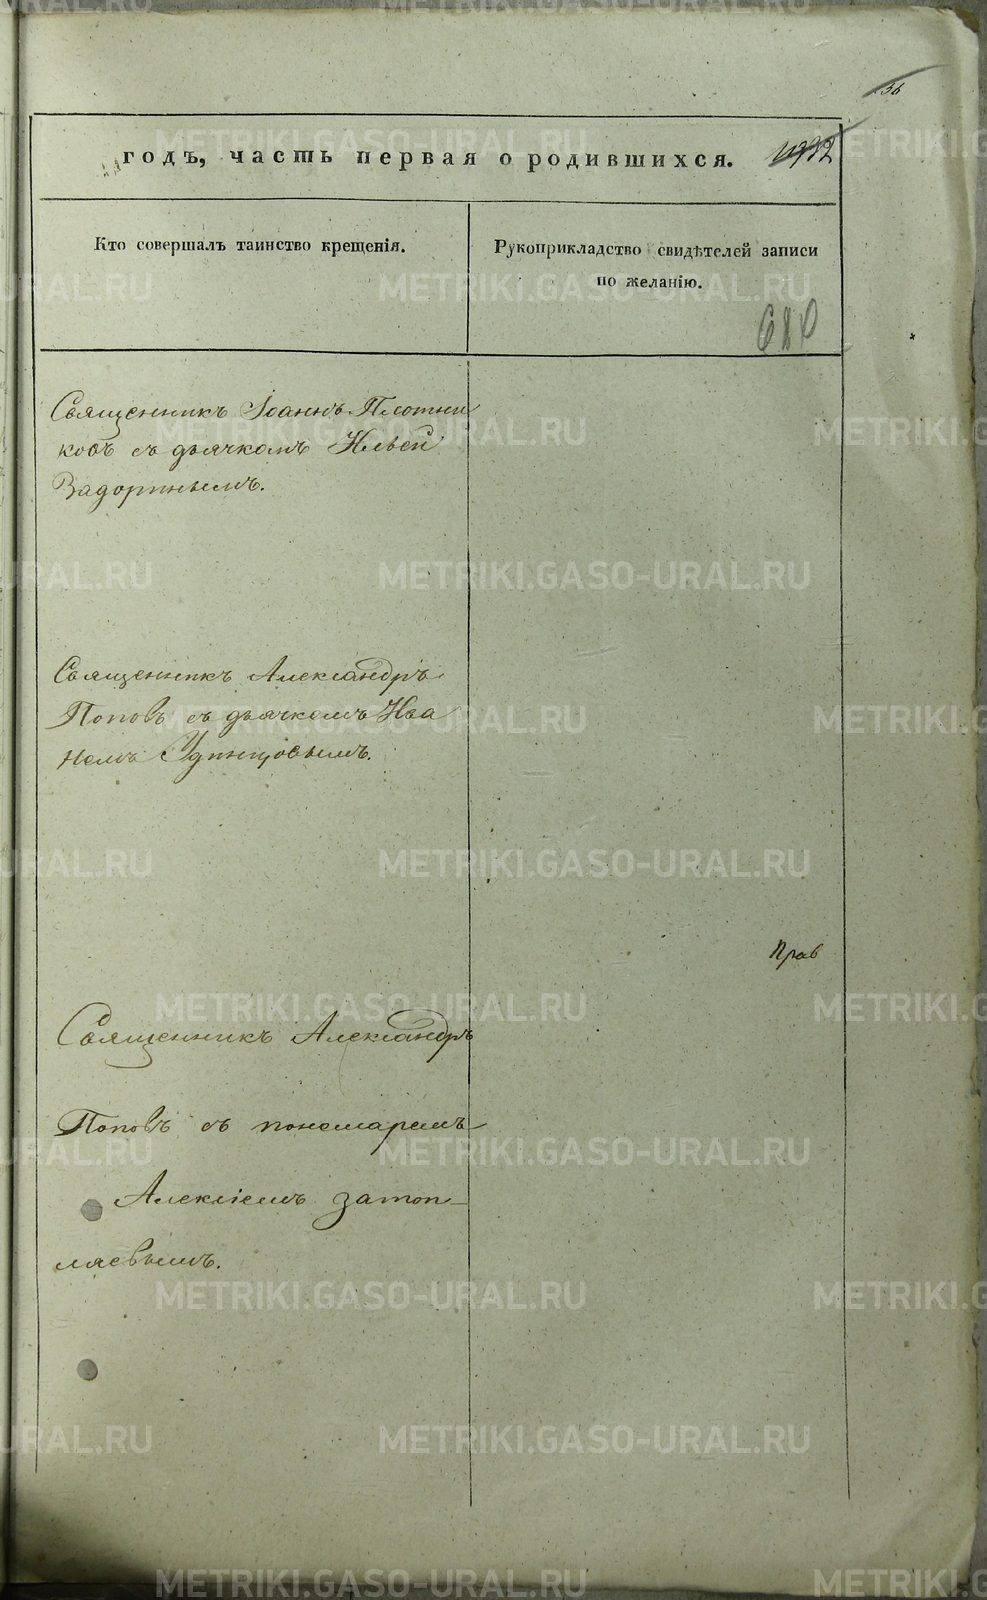 36
годъ, часть первая о родившихся.
Кто совершалъ таинство крещенія.
Рукоприкладство свидѣтелей записи
по желанію.
680
Священникъ Іоаннъ Плотни
ковъ съ дьячкомъ Ильей
Задоринымъ.
Священникъ Александръ
Поповъ съ дьячкомъ Ива
номъ Удинцовымъ.
Прав
Священникъ Александръ
Поповъ съ пономаремъ
Алексіемъ Затоп-
ляевымъ.
METRIKI.GASO-URAL.RU